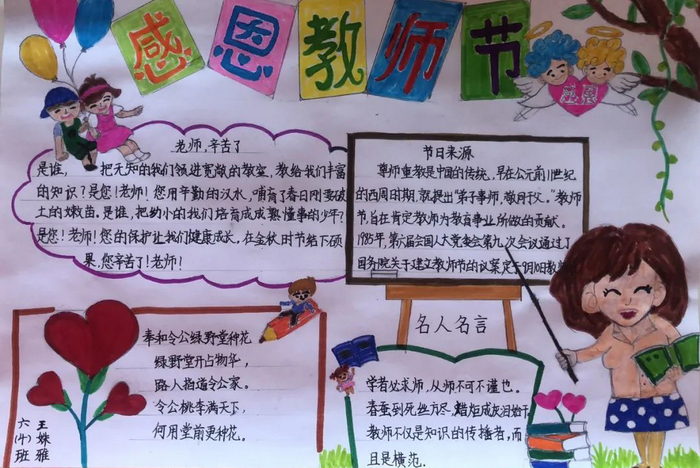 感恩教师节
感恩
老师,辛苦了
是谁, 把无知的我们领进宽敞的教室,教给我们丰富
的知识?是您!老师!您用辛勤的汗水,哺育了春日刚要破
土的嫩苗。是谁,把幼小的我们培育成成熟懂事的少年?
是您!老师!您的保护让我们健康成长,在金秋时节结下硕
果,您辛苦了!老师!
节日来源
尊师重教是中国的传统,早在公元前11世纪
的西周时期,就提出"弟子事师,敬同于父。"教师
节,旨在肯定教师为教育事业所做的贡献。
1985年,第六届全国人大常委会第九次会议通过了
国务院关于建立教师节的议案定于9月10日教
奉和令公绿野堂种花
绿野堂开占物华,
路人指道令公家。
令公桃李满天下,
何用堂前更种花。
六(十)班
王姝雅
名人名言
学者必求师,从师不可不谨也。
春蚕到死丝方尽,蜡炬成灰泪始干
教师不仅是知识的传播者,而
且是模范.